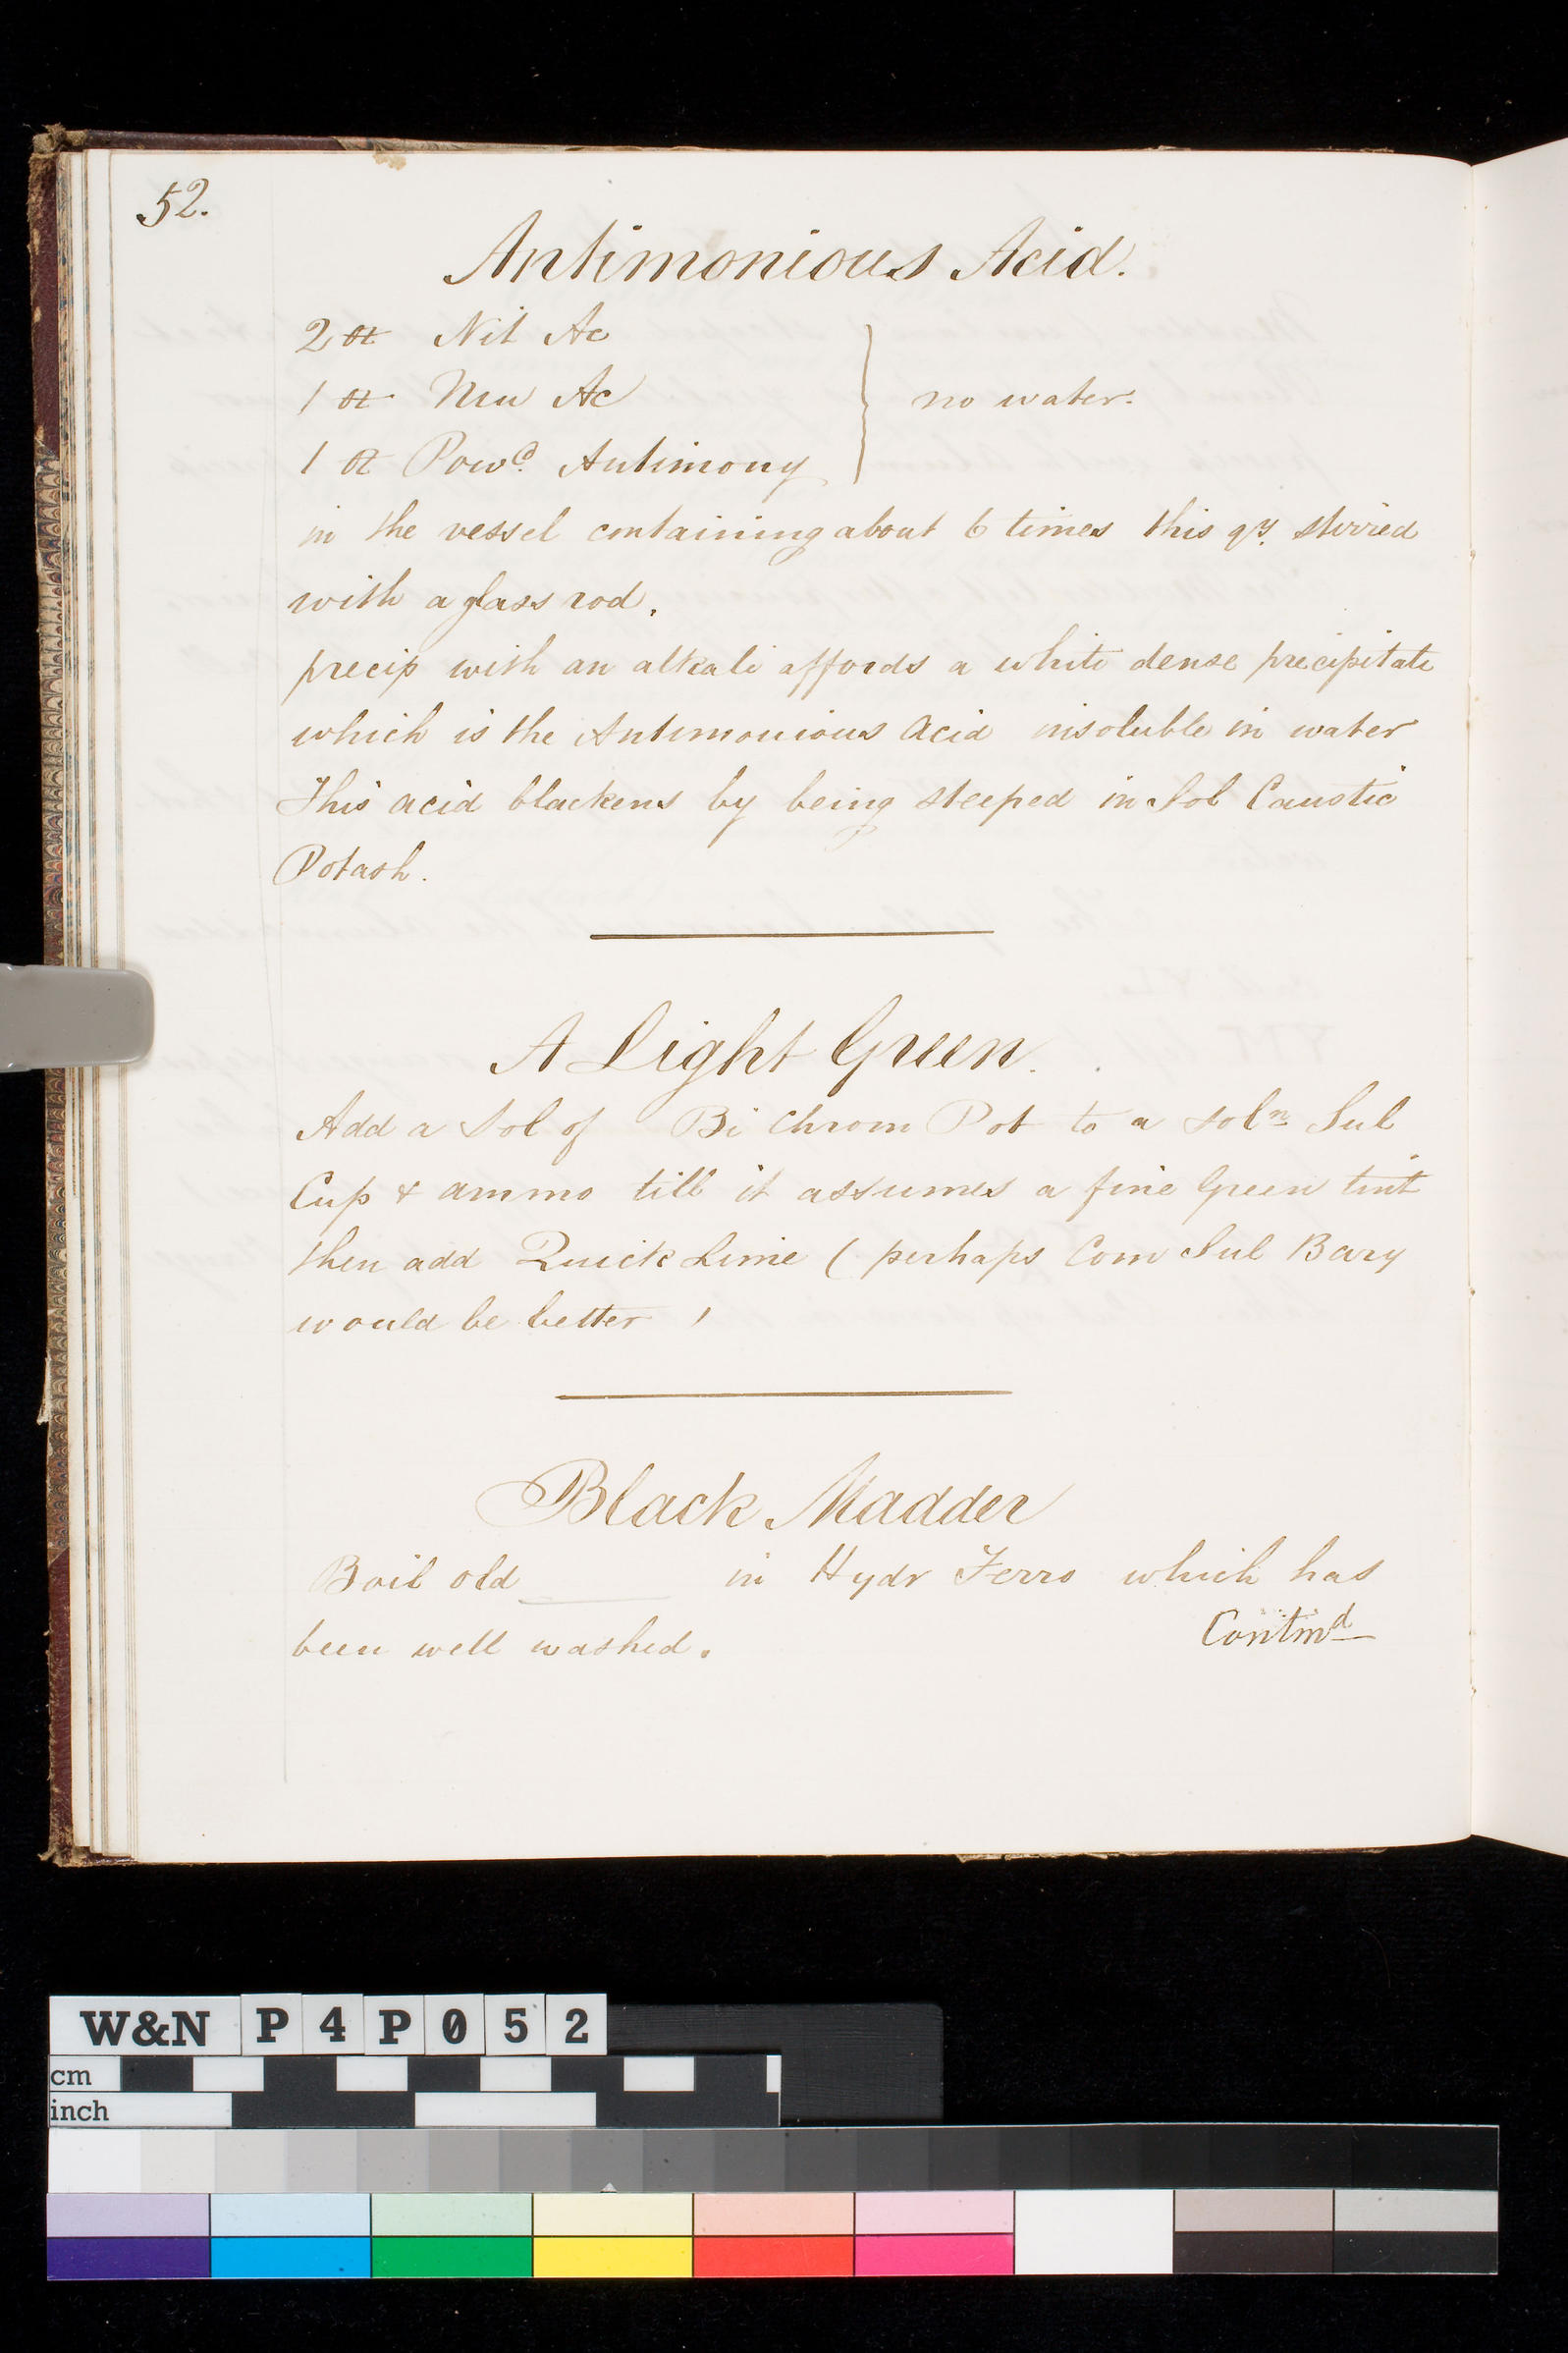 52.
Antimonious Acid.
2 oz Nit Ac
1 oz Mu Ac
no water.
1 oz Powd. Antimony
in the vessel containing about 6 times this qy. stirred
with a glass rod.
precip with an alkali affords a white dense precipitate
which is the Antimonious Acid insoluble in water
This acid blackens by being steeped in Sol Caustic
Potash.
A Light Green.
Add a Sol of Bi Chrom Pot to a soln Sul
Cup & ammo till it assumes a fine Green tint
then add Quick Lime ( perhaps Com Sul Bary
would be better )
Black Madder
Boil old ____ in Hydr Ferro which has
been well washed.
Contind
W&N P4P052
cm
inch